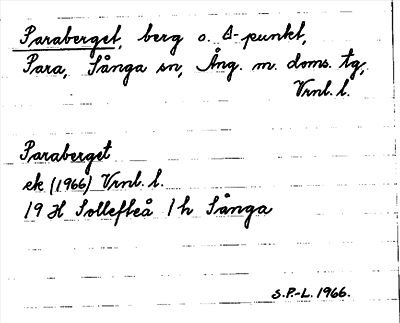 Paraberget, berg o. Δ-punkt,
Para, Sånga sn, Ång. m. doms. tg,
Vrnl. l.
Paraberget
ek (1966) Vrnl. l.
19 H Sollefteå 1 h Sånga
S.P.-L. 1966.